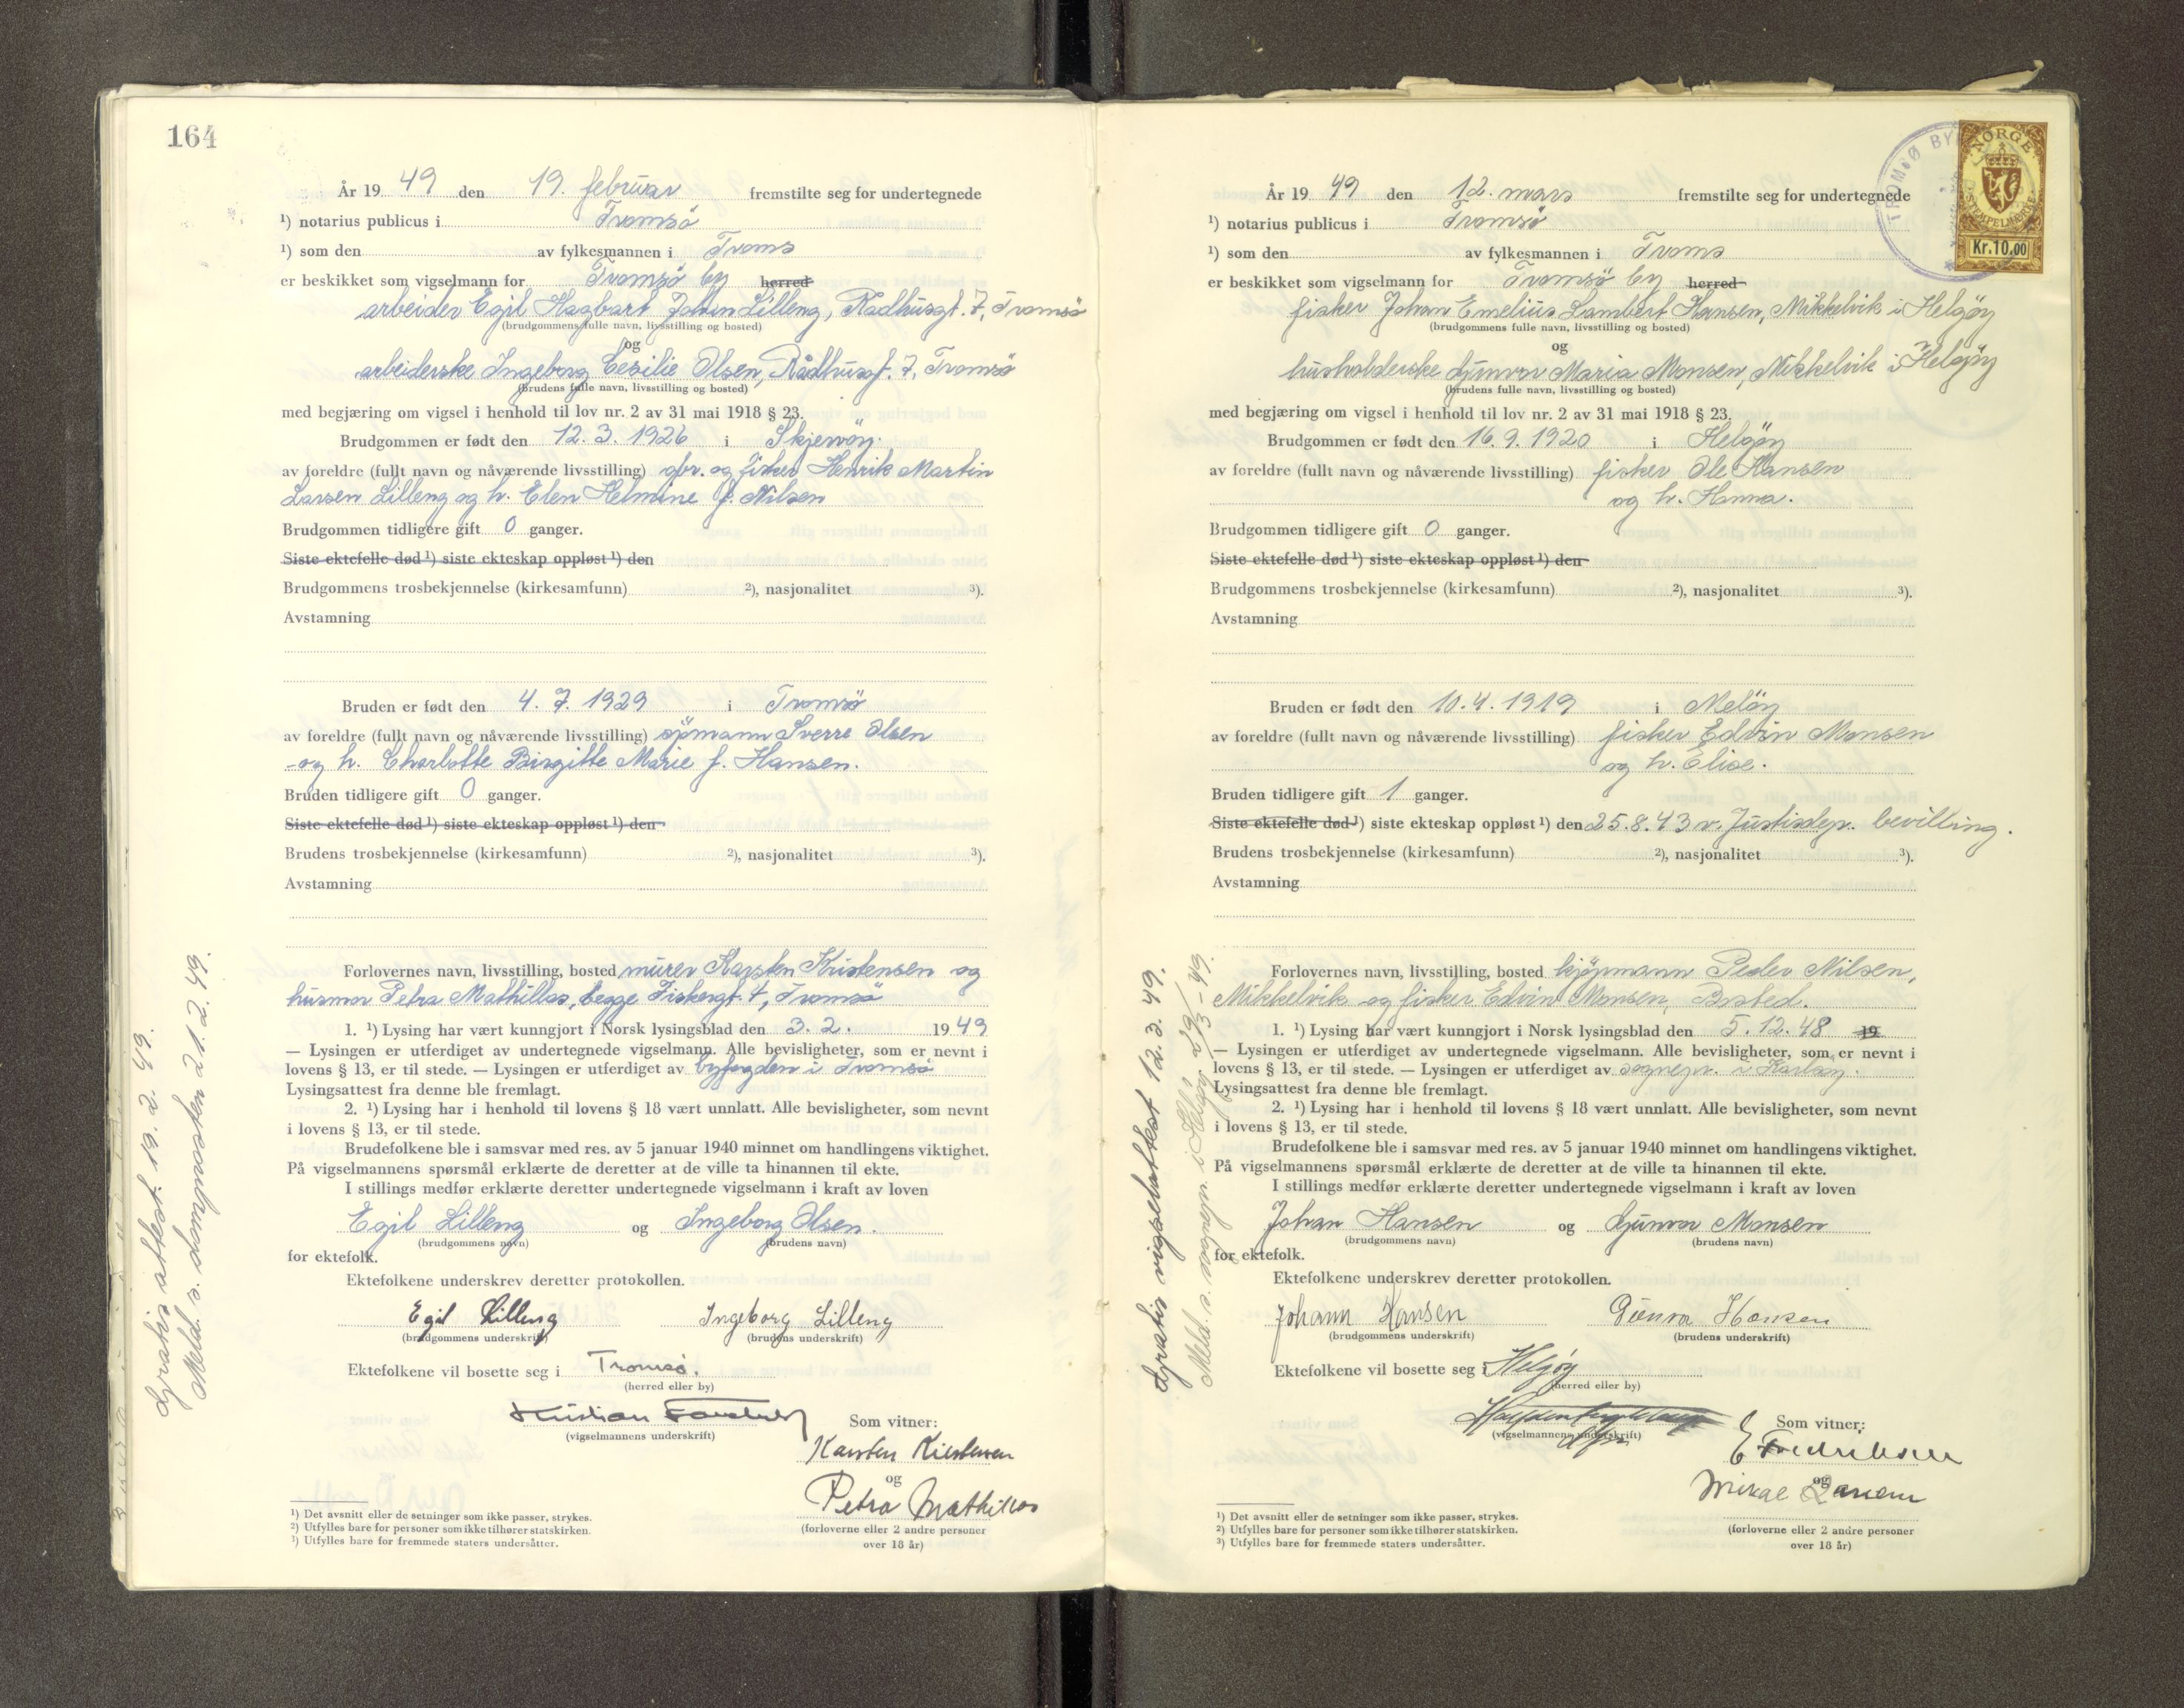 164
År 19 49 den 19. februar fremstilte seg for undertegnede
¹) notarius publicus i Tromsö
¹) som den av fylkesmannen i Troms
er beskikket som vigselmann for Tromsö by herred
arbeider Egil Hagbart Johan Lilleng, Rådhusgt. 7, Tromsö
(brudgommens fulle navn, livsstilling og bosted)
og
arbeiderske Ingeborg Cesilie Olsen, Rådhusgt. 7, Tromsö
(brudens fulle navn, livsstilling og bosted)
med begjæring om vigsel i henhold til lov nr. 2 av 31 mai 1918 § 23.
Brudgommen er født den 12. 3. 1926 i Skjervöy.
av foreldre (fullt navn og nåværende livsstilling) gbr. og fisker Henrik Martin
Larsen Lilleng og h. Elen Helmine f. Nilsen
Brudgommen tidligere gift 0 ganger.
Siste ektefelle død ¹) siste ekteskap oppløst ¹) den
Brudgommens trosbekjennelse (kirkesamfunn) ²), nasjonalitet ³).
Avstamning
Bruden er født den 4. 7. 1929 i Tromsö
av foreldre (fullt navn og nåværende livsstilling) sjömann Sverre Olsen
og h. Charlotte Birgitte Marie f. Hansen.
Bruden tidligere gift 0 ganger.
Siste ektefelle død ¹) siste ekteskap oppløst ¹) den
Brudens trosbekjennelse (kirkesamfunn) ²), nasjonalitet ³).
Avstamning
Forlovernes navn, livsstilling, bosted murer Karsten Kristensen og
husmor Petra Mathillas, begge Fiskergt. 4, Tromsö
1. ¹) Lysing har vært kunngjort i Norsk lysingsblad den 3. 2. 19 49
— Lysingen er utferdiget av undertegnede vigselmann. Alle bevisligheter, som er nevnt i
lovens § 13, er til stede. — Lysingen er utferdiget av byfogden i Tromsö
Lysingsattest fra denne ble fremlagt.
2. ¹) Lysing har i henhold til lovens § 18 vært unnlatt. Alle bevisligheter, som nevnt
i lovens § 13, er til stede.
Brudefolkene ble i samsvar med res. av 5 januar 1940 minnet om handlingens viktighet.
På vigselmannens spørsmål erklærte de deretter at de ville ta hinannen til ekte.
I stillings medfør erklærte deretter undertegnede vigselmann i kraft av loven
Egil Lilleng og Ingeborg Olsen.
(brudgommens navn) (brudens navn)
for ektefolk.
Ektefolkene underskrev deretter protokollen.
Egil Lilleng Ingeborg Lilleng
(brudgommens underskrift) (brudens underskrift)
Ektefolkene vil bosette seg i Tromsø.
(herred eller by)
Kristian
(vigselmannens underskrift)
Som vitner:
Karsten Kristensen
og
Petra Mathillas
(forloverne eller 2 andre personer
over 18 år)
¹) Det avsnitt eller de setninger som ikke passer, strykes.
²) Utfylles bare for personer som ikke tilhører statskirken.
³) Utfylles bare for fremmede staters undersåtter.
Gratis attest. 19. 2. 49.
Meld. s. domprosten 21. 2. 49.
TROMSØ BY
NORGE
STEMPELMERKE
Kr. 10.00
År 19 49 den 12. mars fremstilte seg for undertegnede
¹) notarius publicus i Tromsö
¹) som den av fylkesmannen i Troms
er beskikket som vigselmann for Tromsö by herred
fisker Johan Emelius Lambert Hansen, Mikkelvik i Helgöy
(brudgommens fulle navn, livsstilling og bosted)
og
husholderske Gunvor Maria Monsen, Mikkelvik i Helgöy
(brudens fulle navn, livsstilling og bosted)
med begjæring om vigsel i henhold til lov nr. 2 av 31 mai 1918 § 23.
Brudgommen er født den 16. 9. 1920 i Helgöy
av foreldre (fullt navn og nåværende livsstilling) fisker Ole Hansen
og h. Hanna.
Brudgommen tidligere gift 0 ganger.
Siste ektefelle død ¹) siste ekteskap oppløst ¹) den
Brudgommens trosbekjennelse (kirkesamfunn) ²), nasjonalitet ³).
Avstamning
Bruden er født den 10. 4. 1919 i Melöy
av foreldre (fullt navn og nåværende livsstilling) fisker Edvin Monsen
og h. Elise.
Bruden tidligere gift 1 ganger.
Siste ektefelle død ¹) siste ekteskap oppløst ¹) den 25. 8. 43 v. Justisdep. bevilling.
Brudens trosbekjennelse (kirkesamfunn) ²), nasjonalitet ³).
Avstamning
Forlovernes navn, livsstilling, bosted kjöpmann Peder Nilsen,
Mikkelvik og fisker Edvin Monsen,
1. ¹) Lysing har vært kunngjort i Norsk lysingsblad den 5. 12. 48 19
— Lysingen er utferdiget av undertegnede vigselmann. Alle bevisligheter, som er nevnt i
lovens § 13, er til stede. — Lysingen er utferdiget av sognepr. i Karlsöy.
Lysingsattest fra denne ble fremlagt.
2. ¹) Lysing har i henhold til lovens § 18 vært unnlatt. Alle bevisligheter, som nevnt
i lovens § 13, er til stede.
Brudefolkene ble i samsvar med res. av 5 januar 1940 minnet om handlingens viktighet.
På vigselmannens spørsmål erklærte de deretter at de ville ta hinannen til ekte.
I stillings medfør erklærte deretter undertegnede vigselmann i kraft av loven
Johan Hansen og Gunvor Monsen
(brudgommens navn) (brudens navn)
for ektefolk.
Ektefolkene underskrev deretter protokollen.
Johann Hansen Gunvor Hansen
(brudgommens underskrift) (brudens underskrift)
Ektefolkene vil bosette seg i Helgöy
(herred eller by)
(vigselmannens underskrift)
Som vitner:
E Fredriksen
og
Mikal Larsen
(forloverne eller 2 andre personer
over 18 år)
¹) Det avsnitt eller de setninger som ikke passer, strykes.
²) Utfylles bare for personer som ikke tilhører statskirken.
³) Utfylles bare for fremmede staters undersåtter.
Gratis vigselattest 12. 3. 49.
Meld. s. sognepr. i Helgöy 29/3-49.